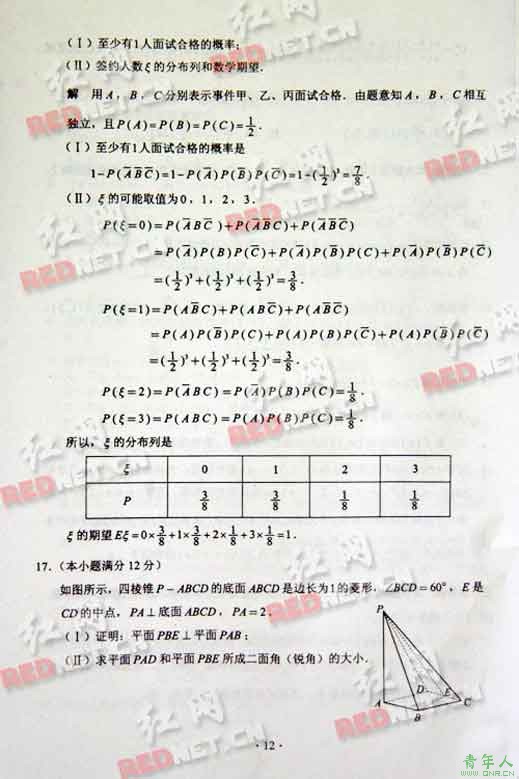 (Ⅰ)至少有1人面试合格的概率;
(Ⅱ)签约人数ξ的分布列和数学期望.
解 用A,B,C分别表示事件甲、乙、丙面试合格.由题意知A,B,C相互
独立,且P(A)=P(B)=P(C)=1/2.
(Ⅰ)至少有1人面试合格的概率是
1-P(A̅B̅C̅)=1-P(A̅)P(B̅)P(C̅)=1-(1/2)³=7/8.
(Ⅱ)ξ的可能取值为0,1,2,3.
P(ξ=0)=P(A̅BC̅)+P(A̅B̅C)+P(A̅B̅C̅)
=P(A̅)P(B)P(C̅)+P(A̅)P(B̅)P(C)+P(A̅)P(B̅)P(C̅)
=(1/2)³+(1/2)³+(1/2)³=3/8.
P(ξ=1)=P(AB̅C)+P(ABC̅)+P(AB̅C̅)
=P(A)P(B̅)P(C)+P(A)P(B)P(C̅)+P(A)P(B̅)P(C̅)
=(1/2)³+(1/2)³+(1/2)³=3/8.
P(ξ=2)=P(A̅BC)=P(A̅)P(B)P(C)=1/8.
P(ξ=3)=P(ABC)=P(A)P(B)P(C)=1/8.
所以,ξ的分布列是
ξ 0 1 2 3
P 3/8 3/8 1/8 1/8
ξ的期望Eξ=0×3/8+1×3/8+2×1/8+3×1/8=1.
17.(本小题满分12分)
如图所示,四棱锥P-ABCD的底面ABCD是边长为1的菱形,∠BCD=60°,E是
CD的中点,PA⊥底面ABCD,PA=2.
(Ⅰ)证明:平面PBE⊥平面PAB;
(Ⅱ)求平面PAD和平面PBE所成二面角(锐角)的大小.
P
D E
A B C
·12·
红网
REDNET.CN
青年人
www.QNR.CN